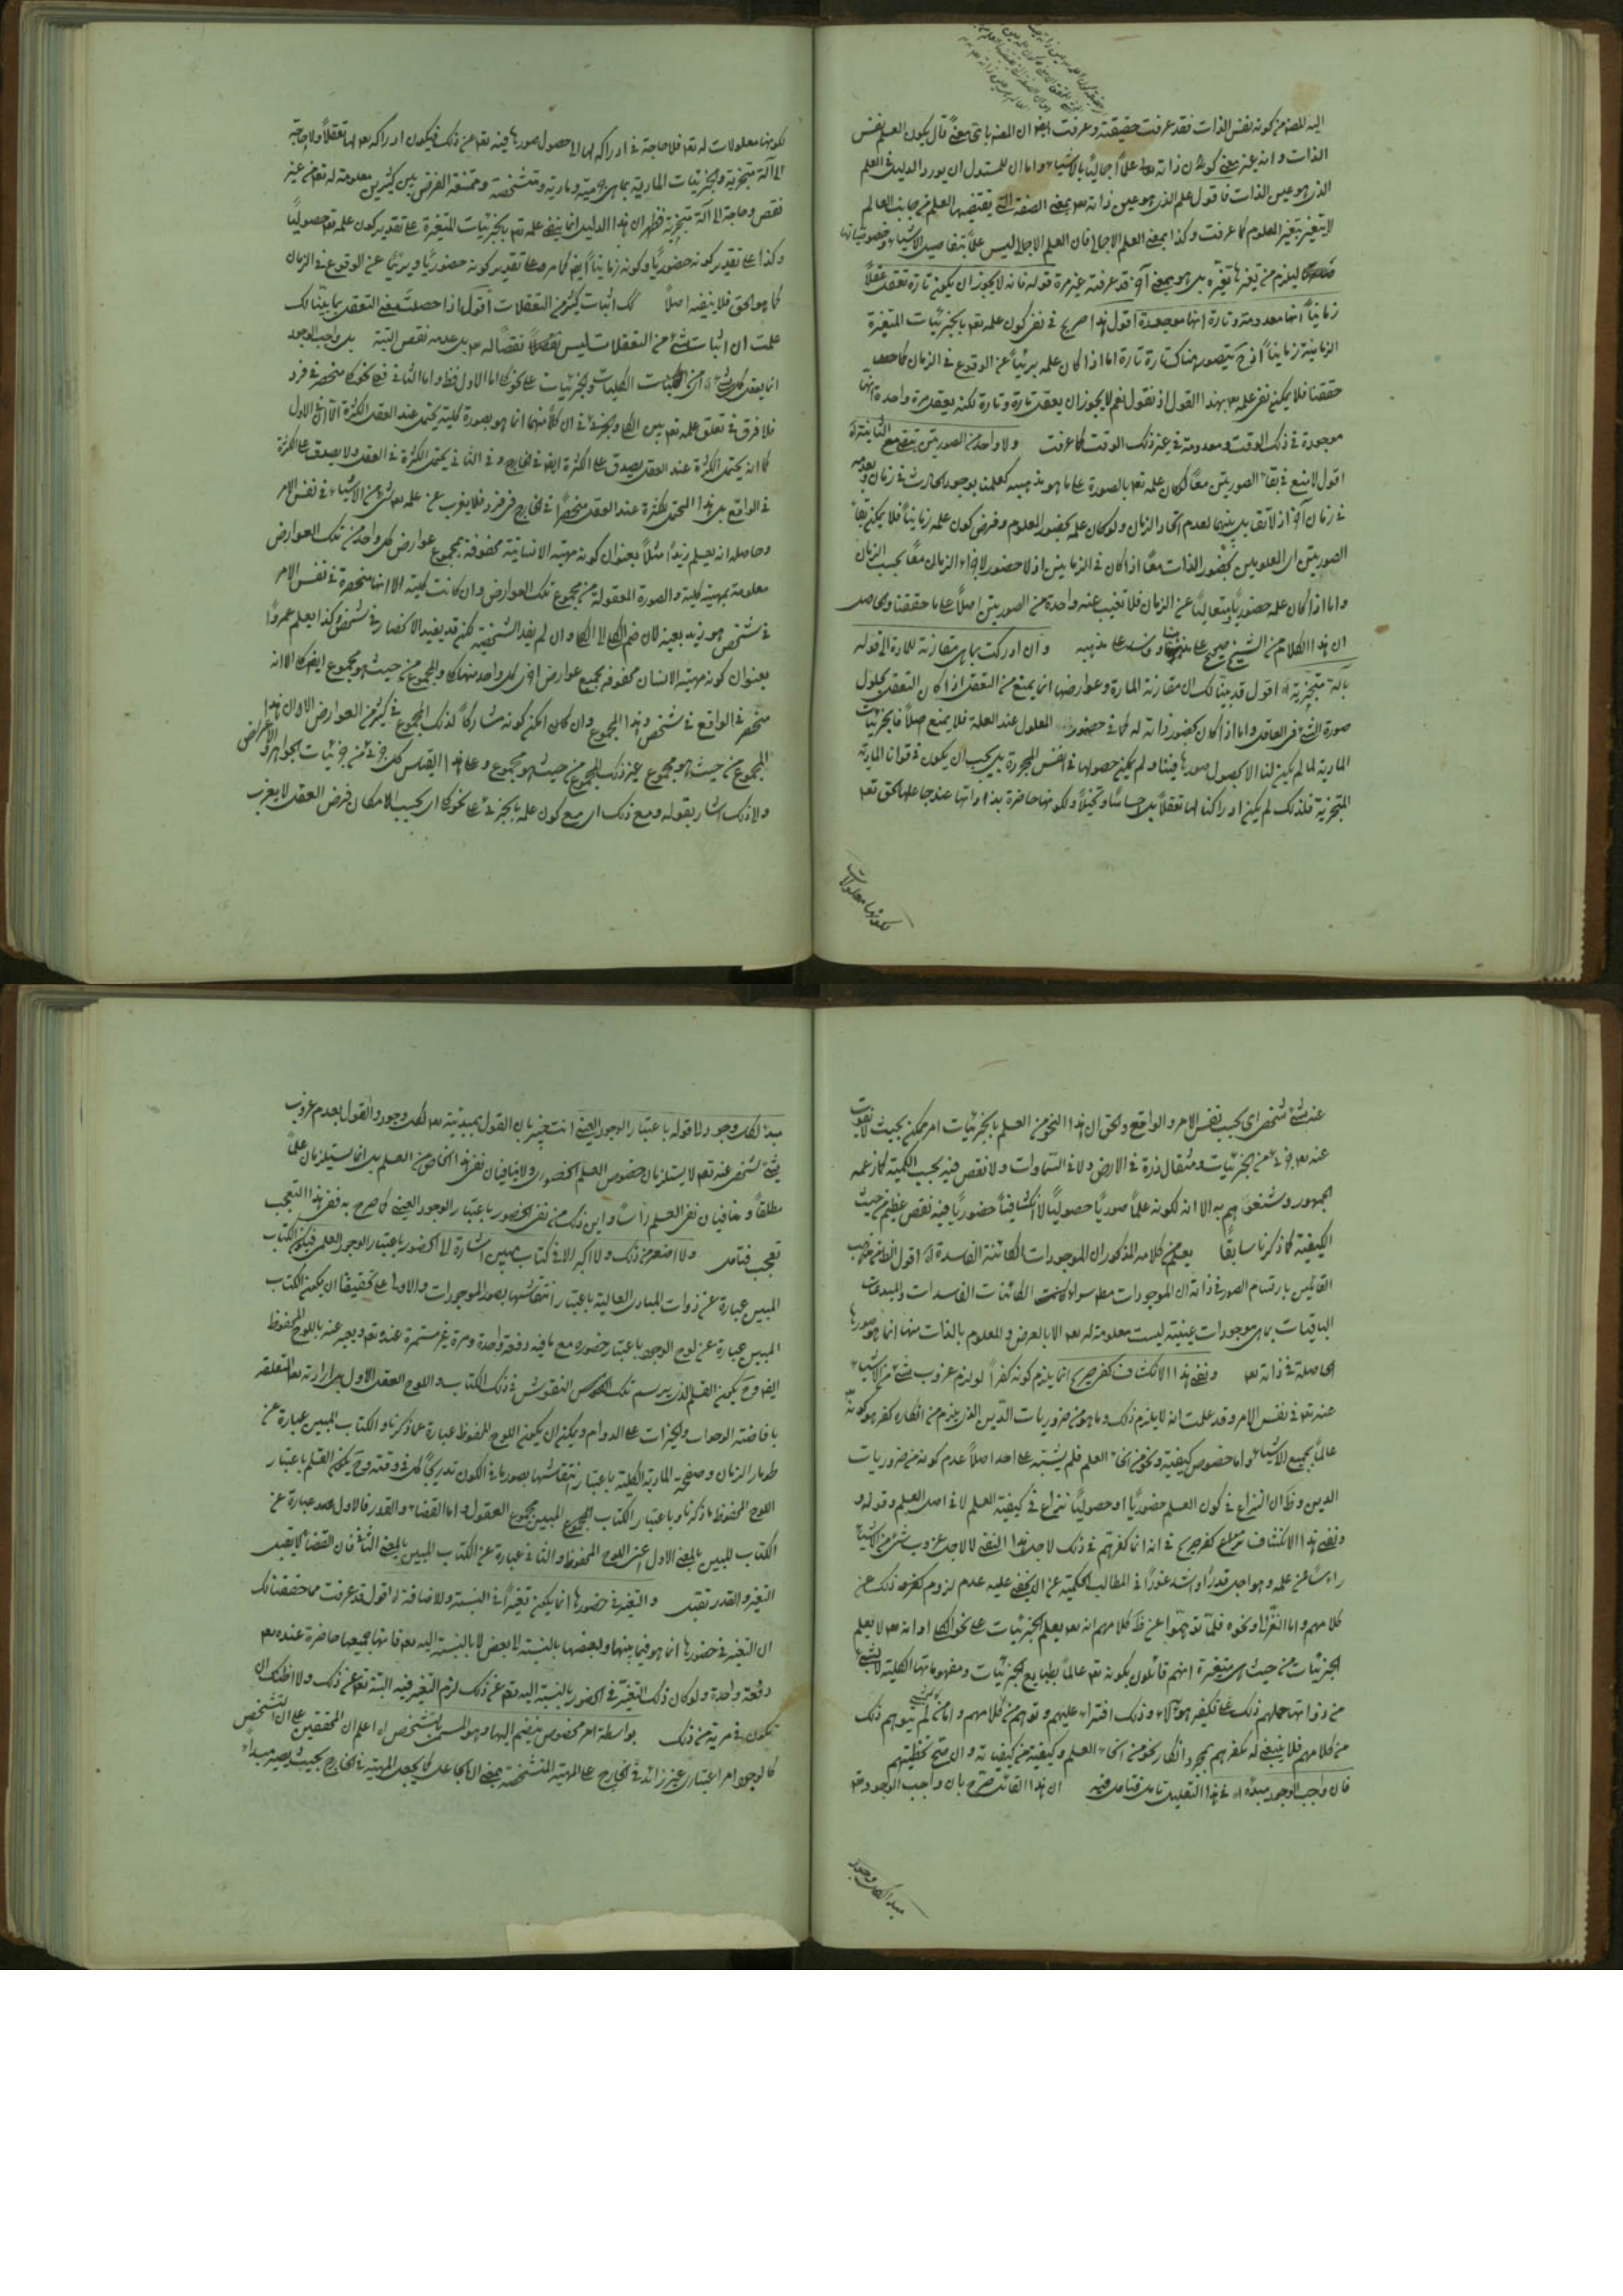 اليه للصفة من كونه نفس الذات فقد عرفت حقيقته وعرفت ايضا ان المعنى باى معنى قال يكون العلم نفس
الذات وانه عين معنى كون ذاته علما اجماليا بالاشياء واما ان للمستدل ان يورد الدليل فى العلم
الذى هو عين الذات فاقول علم الذى هو عين ذاته تعه بمعنى الصفة التى يقتضيها العلم من جانب العالم
لا يتغير بتغير المعلوم كما عرفت وكذا بمعنى العلم الاجمالى فان العلم الاجمالى ليس علما بتفاصيل الاشياء وخصوصياتها
ليلزم من تغيرها تغيره بل هو بمعنى آخر قد عرفته غير مرة قوله فانه لا يجوز ان يكون تارة تعقل عقلا
زمانيا انها معدومة وتارة انها موجودة اقول هذا صريح فى نفى كون علمه تعه بالجزئيات المتغيرة
الزمانية زمانيا اذ ح يتصور هناك تارة تارة اما اذا كان علمه بريئا عن الوقوع فى الزمان كما
حققنا فلا يمكن نفى علمه تعه بهذا القول اذ نقول نعم لا يجوز ان يعقل تارة وتارة لكنه يعقل مرة واحدة انها
موجودة فى ذلك الوقت ومعدومة فى غير ذلك الوقت كما عرفت ولا واحد من الصورتين يبقى مع الثانية اه
اقول لا منع فى بقاء الصورتين معا لو كان علمه تعه بالصورة على ما هو مذهبه كعلمنا بوجود الحادث فى زمان وبعدمه
فى زمان آخر اذ لا تقابل بينهما لعدم اتحاد الزمان ولو كان علمه بحضور المعلوم وفرض كون علمه زمانيا فلا يمكن بقاء
الصورتين اى المعلومين بحضور الذات معا اذ كان فى الزمانين اذ لا حضور لاجزاء الزمان معا بحسب الزمان
واما اذا كان علمه حضوريا متعاليا عن الزمان فلا تغيب عنه واحدة من الصورتين اصلا على ما حققنا والحاصل
ان هذا الكلام من الشيخ صحيح على مذهبنا وفاسد على مذهبه وان ادركت بما هى مقارنة للمادة الى قوله
بآلة متجزية اه اقول قد بينا لك ان مقارنة المادة وعوارضها انما يمنع من التعقل اذا كان التعقل بحلول
صورة الشئ فى العاقل واما اذا كان بحضور ذاته له كما فى حضور المعلول عند العلة فلا يمنع اصلا فالجزئيات
المادية لما لم يكن لنا الا بحصول صورها فينا ولم يمكن حصولها فى انفس المجردة بل يجب ان يكون فى قوانا المادية
المتجزية فلذلك لم يكن ادراكنا لها تعقلا بل احساسا وتخيلا ولكونها حاضرة بذواتها عند جاعلها الحق تعه
لكونها معلولات
لكونها معلولات له تعه فلا حاجة فى ادراكه لها الى حصول صورها فيه تعه عن ذلك فيكون ادراكه تعه لها تعقلا ولا حاجة
الى آلة متجزية والجزئيات المادية بما هى جزئية ومادية ومتشخصة وممتنعة الفرض بين كثيرين معلومة له تعه من غير
نقص وحاجة الى آلة متجزية فظهر ان هذا الدليل انما ينفى علمه تعه بالجزئيات المتغيرة على تقدير كون علمه تعه حصوليا
وكذا على تقدير كونه حضوريا وكونه زمانيا ايضا كما مر وعلى تقدير كونه حضوريا وبريئا عن الوقوع فى الزمان
كما هو الحق فلا ينفيه اصلا لك اثبات كثير من التعقلات اقول اذا حصلت معنى التعقل بما بينا لك
علمت ان اثبات شئ من التعقلات ليس نقصا له تعه بل عدمه نقص البتة بل واجب الوجود
انما يعقل كل شئ اه اى من الكليات والجزئيات على نحو كلى اما الاول فظ واما الثانى فعلى نحو كلى منحصر فى فرد
فلا فرق فى تعلق علمه تعه بين الكلى والجزئى فى ان كلا منهما انما هو بصورة كلية يحتمل عند العقل الكثرة الا ان فى الاول
كما انه يحتمل الكثرة عند العقل يصدق على الكثرة ايضا فى الخارج وفى الثانى يحتمل الكثرة فى العقل ولا يصدق على الكثرة
فى الواقع بل هذا المحتمل للكثرة عند العقل منحصرا فى الخارج فى فرد فلا يغرب عن علمه تعه شئ من الاشياء فى نفس الامر
وحاصله انه يعلم زيدا مثلا بعنوان كونه مهية الانسانية محفوفة بمجموع عوارض كل واحد من تلك العوارض
معلومة بمهية كلية والصورة المعقولة من مجموع تلك العوارض وان كانت كلية الا انها منحصرة فى نفس الامر
فى شخص هو زيد بعينه لان ضم الكلى الى الكلى وان لم يفد الشخصية لكن قد يفيد الانحصار فى شخص وكذا يعلم عمروا
بعنوان كونه مهية الانسان محفوفة بجميع عوارض اخرى كل واحد منها كلى والمجموع من حيث هو مجموع ايضا كلى الا انه
منحصر فى الواقع فى شخص وهذا المجموع وان كان امكن كونه مشاركا لذلك المجموع فى كثير من العوارض الا ان هذا
المجموع من حيث هو مجموع غير ذلك المجموع من حيث هو مجموع وعلى هذا القياس كل جزئى من جزئيات الجواهر والاعراض
والى ذلك اشار بقوله ومع ذلك اى مع كون علمه بالجزئى على نحو كلى اى بحسب الامكان فرض العقل لا يغرب
عنه شئ شخصى اى بحسب نفس الامر والواقع والحق ان هذا النحو من العلم بالجزئيات امر ممكن بحيث لا يفوت
عنه تعه جزئى من الجزئيات ومثقال ذرة فى الارض ولا فى السماوات ولا نقص فيه بحسب الكمية كما زعمه
الجمهور وشنعوا هم به الا انه لكونه علما صوريا حصوليا لا انكشافيا حضوريا فيه نقص عظيم من حيث
الكيفية كما ذكرنا سابقا يعلم من كلامه المذكور ان الموجودات الكائنة الفاسدة اه اقول الظ من مذهب
القائلين بارتسام الصور فى ذاته ان الموجودات مطه سواء كانت الكائنات الفاسدات والمبدعات
الباقيات بما هى موجودات عينية ليست معلومة له تعه الا بالعرض والمعلوم بالذات منها انما هو صورها
الحاصلة فى ذاته تعه ونفى هذا الانكشاف كفر صريح انما يلزم كونه كفرا لو لزم غروب شئ من الاشياء
عنه تعه فى نفس الامر وقد علمت انه لا يلزم ذلك وما هو من ضروريات الدين الذى يلزم من انكاره كفر هو كونه تعه
عالما بجميع الاشياء واما خصوص كيفية ونحو من انحاء العلم فلم يشتبه على احد اصلا عدم كونه من ضروريات
الدين وظ ان النزاع فى كون العلم حضوريا او حصوليا نزاع فى كيفية العلم لا فى اصل العلم وقوله و
ونفى هذا الانكشاف كفر صريح فى انه انما كفرهم فى ذلك لاجل هذا النفى لا لاجل غروب شئ من الاشياء
راسا عن علمه وهو اجل قدرا واشد غورا فى المطالب الحكمية عن ان يخفى عليه عدم لزوم كفر من ذلك من
كلامهم واما الغزالى ونحوه فلما توهموا عن ظ كلامهم انه تعه يعلم الجزئيات على نحو الكلى او انه تعه لا يعلم
الجزئيات من حيث هى متغيرة انهم قائلون بكونه تعه عالما بطبايع الجزئيات ومفهوماتها الكلية لا بشئ
من ذواتها حملهم ذلك على تكفير هؤلاء وذلك افتراء عليهم وتوهم من كلامهم واما من لم يتوهم ذلك
من كلامهم فلا ينبغى له تكفيرهم بمجرد انكار نحو من انحاء العلم وكيفية من كيفياته وان صح تخطئتهم
فان واجب الوجود مبدء اه فى هذا التعليل تامل فتامل فيه ان هذا القائل صرح بان واجب الوجود تعه
مبدء لكل وجود
مبدء لكل وجود الى قوله باعتبار الوجود العينى انت خبير بان القول بمبدئيته تعه لكل وجود والقول بعدم غروب
شئ شخصى عنه تعه لا يستلزمان خصوص العلم الحضورى ولا ينافيان نفى هذا الخاص من العلم بل انما يستلزمان علما
مطلقا وينافيان نفى العلم راسا واين ذلك من نفى الحضور باعتبار الوجود العينى كما صرح به ففى هذا التعجب
تعجب فتامل ولا اصغر من ذلك ولا اكبر الا فى كتاب مبين اشارة الى الحضور باعتبار الوجود العلمى فيكون الكتاب
المبين عبارة عن ذوات المبادى العالية باعتبار انتقاشها بصور الموجودات والاولى على تحقيقنا ان يكون الكتاب
المبين عبارة عن لوح الوجود باعتبار حضوره مع ما فيه دفعة واحدة ومرة غير مستمرة عنده تعه ويعبر عنه باللوح المحفوظ
ايضا وح يكون القلم الذى يرسم تلك النقوش فى ذلك الكتاب واللوح العقل الاول بل ارادته تعه المتعلقة
بافاضة الوجود والخيرات على الدوام ويمكن ان يكون اللوح المحفوظ عبارة عما ذكرنا والكتاب المبين عبارة عن
طومار الزمان وصفحة المادية الكلية باعتبار انتقاشها بصور ما فى الكون تدريجا كل فى وقته وح يكون القلم باعتبار
اللوح المحفوظ ما ذكرنا وباعتبار الكتاب المبين مجموع العقول واما القضاء والقدر فالاول عبارة عن
الكتاب المبين بالمعنى الاول اعنى اللوح المحفوظ والثانى عبارة عن الكتاب المبين بالمعنى الثانى فان القضاء لا يقبل
التغير والقدر يقبل والتغير فى حضورها انما يكون تغيرا فى النسبة والاضافة اه اقول قد عرفت مما حققنا لك
ان التغير فى حضورها انما هو فيما بينها وبعضها بالنسبة الى بعض لا بالنسبة اليه تعه فانها بجميعها حاضرة عنده تعه
دفعة واحدة ولو كان ذلك التغير فى الحضور بالنسبة اليه تعه عن ذلك لزم التغير فيه البتة تعه عن ذلك ولا اظنك ان
تكون فى مرية من ذلك بواسطة امر مخصوص ينضم اليها وهو المسمى بالتشخص اه اعلم ان المحققين على ان التشخص
كالوجود امر اعتبارى غير زائد فى الخارج على المهية المتشخصة بمعنى ان الجاعل كما يجعل المهية فى الخارج بحيث يصير مبداء